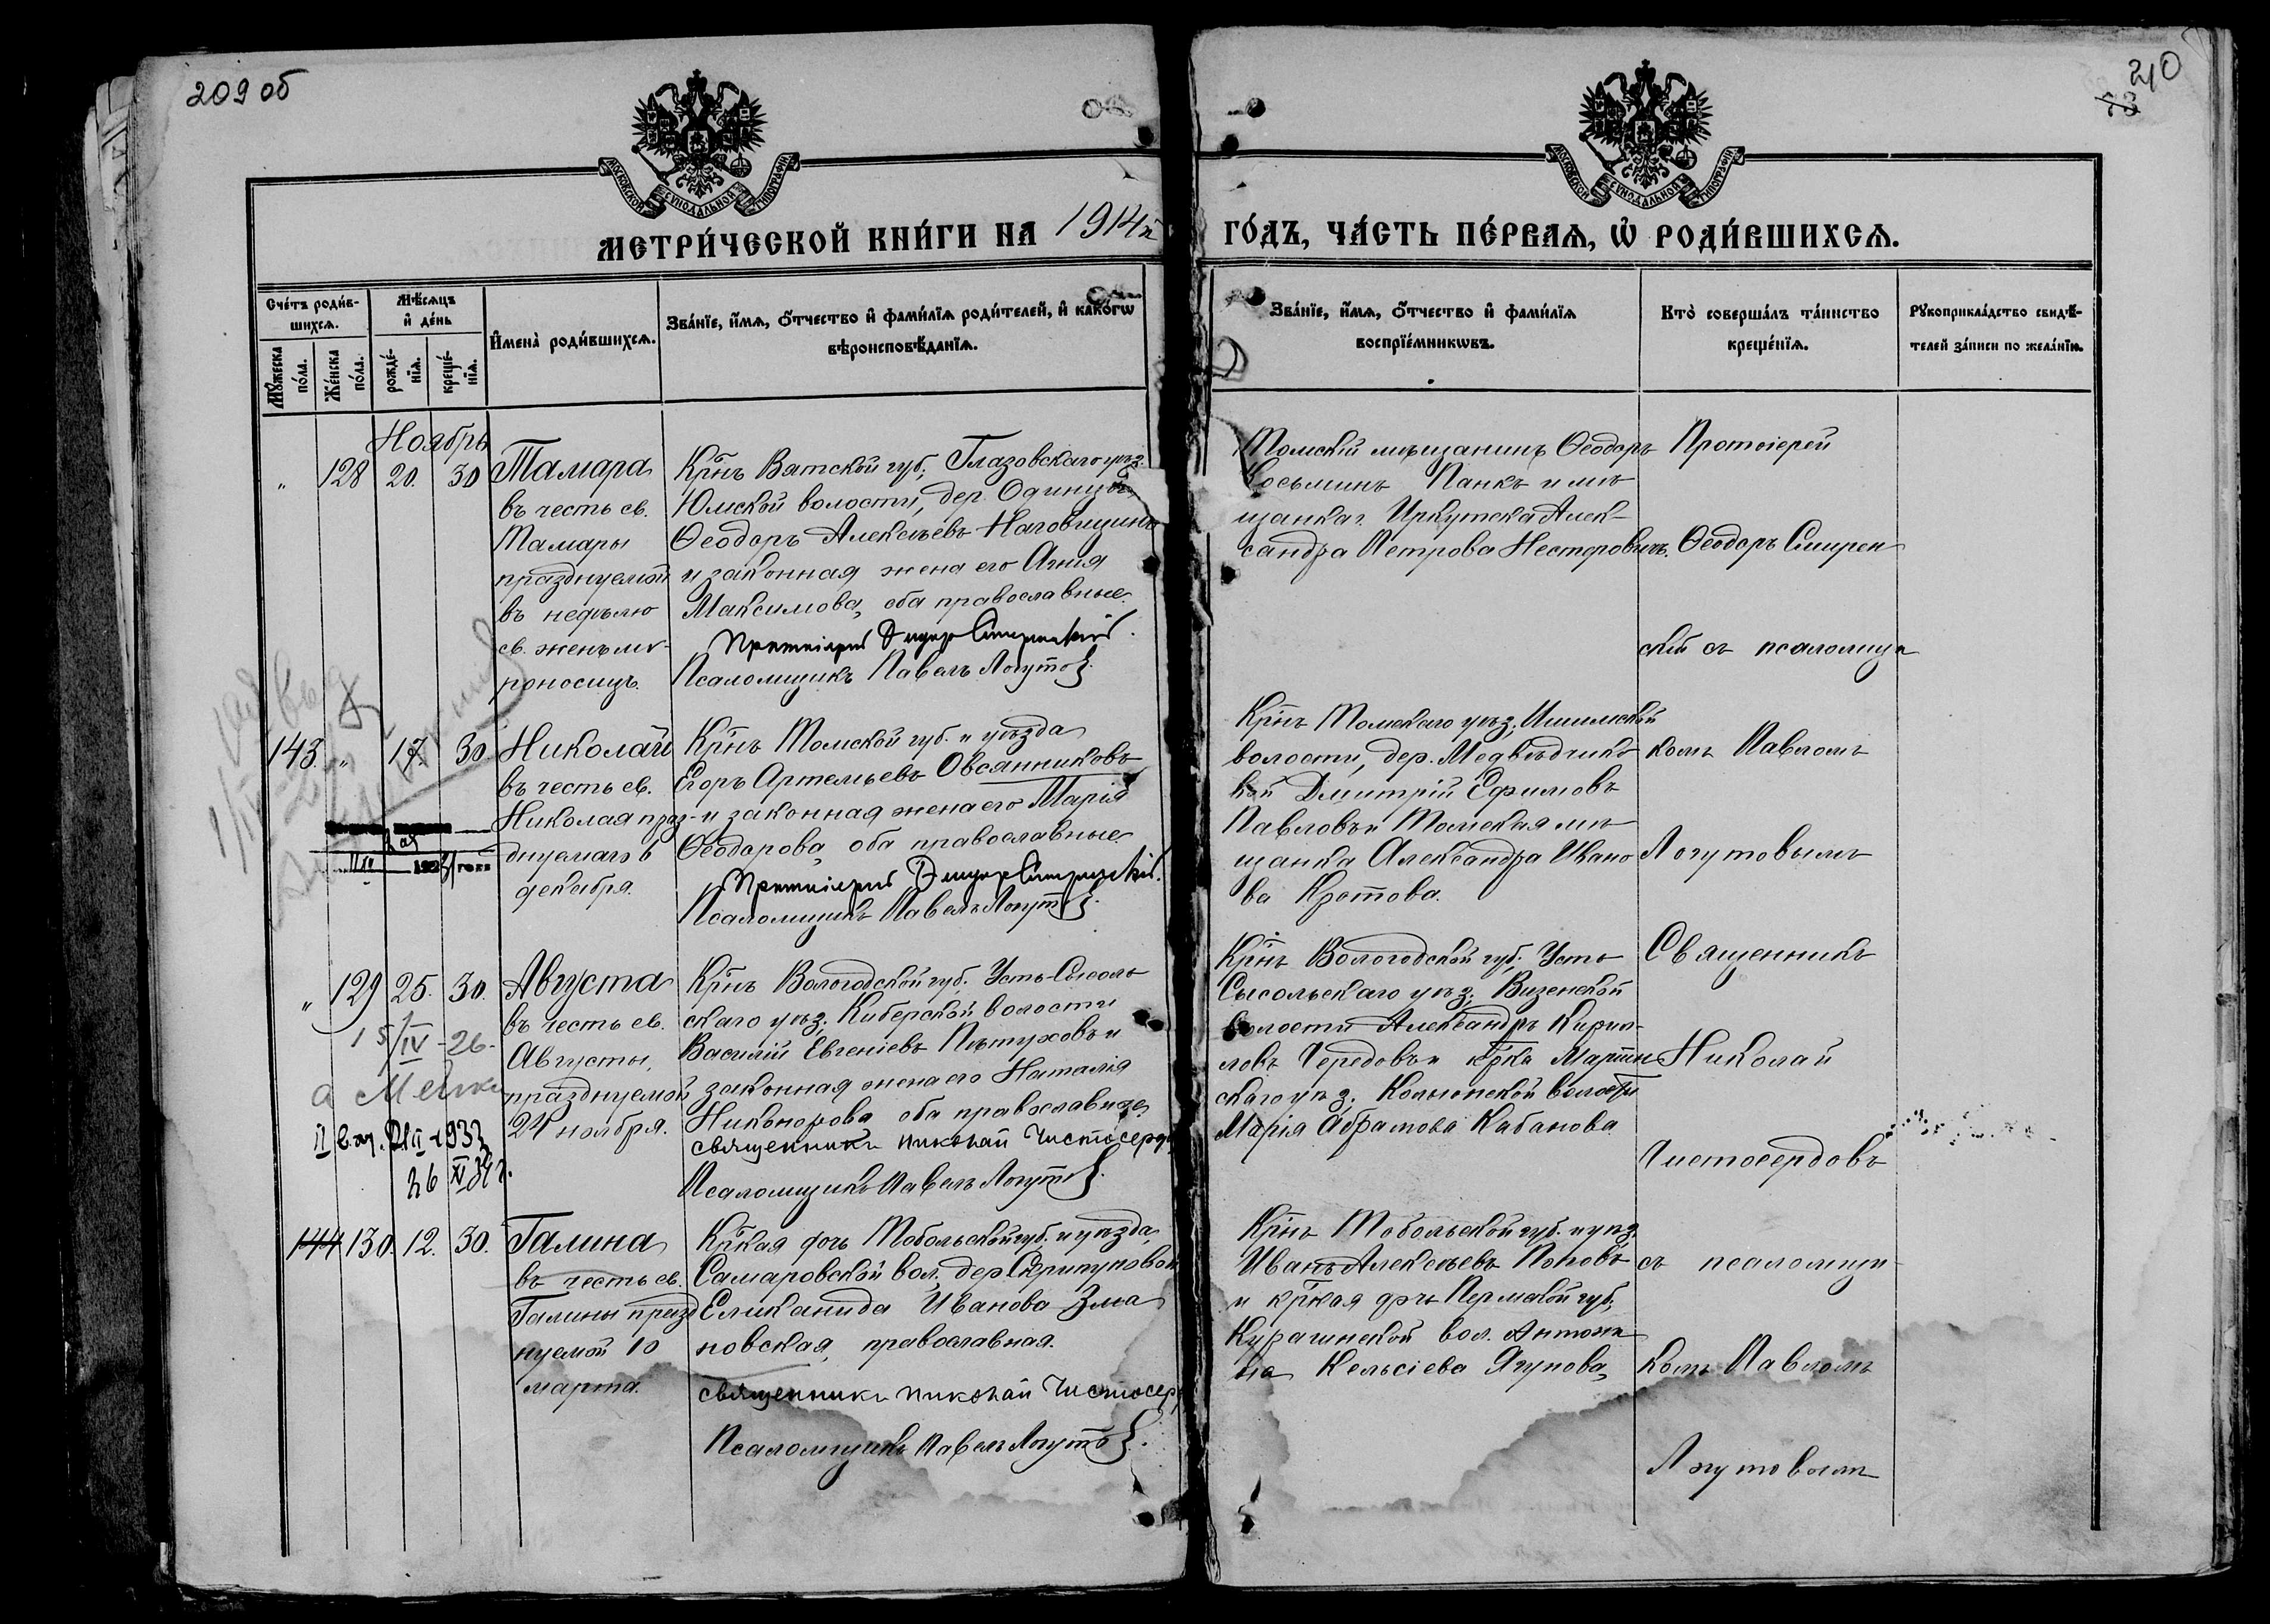 209 об
210
МОСКОВСКОЙ СѴНОДАЛЬНОЙ ТИПОГРАФІИ
МОСКОВСКОЙ СѴНОДАЛЬНОЙ ТИПОГРАФІИ
МЕТРИ́ЧЕСКОЙ КНИ́ГИ НА 1914й
ГО́ДЪ, ЧА́СТЬ ПЕ́РВАѦ, Ѽ РОДИ́ВШИХСѦ.
Сче́тъ роди́в-
шихсѧ.
Мꙋ́жеска
по́ла.
Же́нска
по́ла.
Мѣ́сѧцъ
и҆ де́нь
рожде́-
нїѧ.
креще́-
нїѧ.
И҆мена̀ роди́вшихсѧ.
Зва́нїе, и҆́мѧ, ѻ҆́тчество и҆ фами́лїѧ роди́телей, и҆ како́гѡ
вѣроисповѣ́данїѧ.
Зва́нїе, и҆́мѧ, ѻ҆́тчество и҆ фами́лїѧ
воспрїе́мникѡвъ.
Кто̀ соверша́лъ та́инство
креще́нїѧ.
Рꙋкоприкла́дство свидѣ́-
телей за́писи по жела́нїю.
Ноябрь
" 128 20. 30
Тамара
въ честь св.
Тамары
празднуемой
въ недѣлю
св. женъ мѵ-
роносицъ.
Кр̃нъ Вятской губ., Глазовскаго уѣз.
Юмской волости, дер. Одинцы
Ѳеодоръ Алексѣевъ Наговицинъ
и законная жена его Агнія
Максимова, оба православные.
Протоіерей Ѳеодоръ Смиренскій.
Псаломщикъ Павелъ Логутовъ.
Томскій мѣщанинъ Ѳеодоръ
Косьминъ Панкъ и мѣ-
щанка г. Иркутска Алек-
сандра Петрова Нестеровичъ.
Протоіерей
Ѳеодоръ Смирен
скій съ псаломщи
143. " 17. 30.
Николай
въ честь св.
Николая праз-
днуемаго 6
декабря.
Кр̃нъ Томской губ. и уѣзда
Егоръ Артемьевъ Овсянниковъ
и законная жена его Марія
Ѳеодорова, оба православные.
Протоіерей Ѳеодоръ Смиренскій.
Псаломщикъ Павелъ Логутовъ.
Кр̃нъ Томскаго уѣз. Ишимской
волости, дер. Медвѣдчико-
вой Дмитрій Ефимовъ
Павловъ и Томская мѣ-
щанка Александра Ивано
ва Кротова.
комъ Павломъ
Логутовымъ
года
" 129 25. 30.
15/IV-26-
Августа
въ честь св.
Августы,
празднуемой
24 ноября.
Кр̃нъ Вологодской губ. Усть-Сысоль-
скаго уѣз. Киберской волости
Василій Евгеніевъ Пѣтуховъ и
законная жена его Наталія
Никонорова оба православные
священникъ Николай Чистосерд
Псаломщикъ Павелъ Логутовъ.
Кр̃нъ Вологодской губ. Усть
Сысольскаго уѣз. Визенской
волости Александръ Кирил-
ловъ Чередовъ и кр̃ка Маріин
скаго уѣз. Колыонской волости
Марія Абрамова Кабанова
Священникъ
Николай
Чистосердовъ
144 130. 12. 30.
Галина
въ честь св.
Галины празд
нуемой 10
марта.
Кр̃ская дочь Тобольской губ. и уѣзда,
Самаровской вол. дер. Скрипуновой
Еликанида Иванова Зма
новская, православная.
священникъ Николай Чистосер
Псаломщикъ Павелъ Логутовъ.
Кр̃нъ Тобольской губ. и уѣз.
Иванъ Алексѣевъ Поповъ
и кр̃ская дочь Пермской губ.
Курашинской вол. Антони
на Кельсіева Ягунова,
съ псаломщи-
комъ Павломъ
Логутовымъ